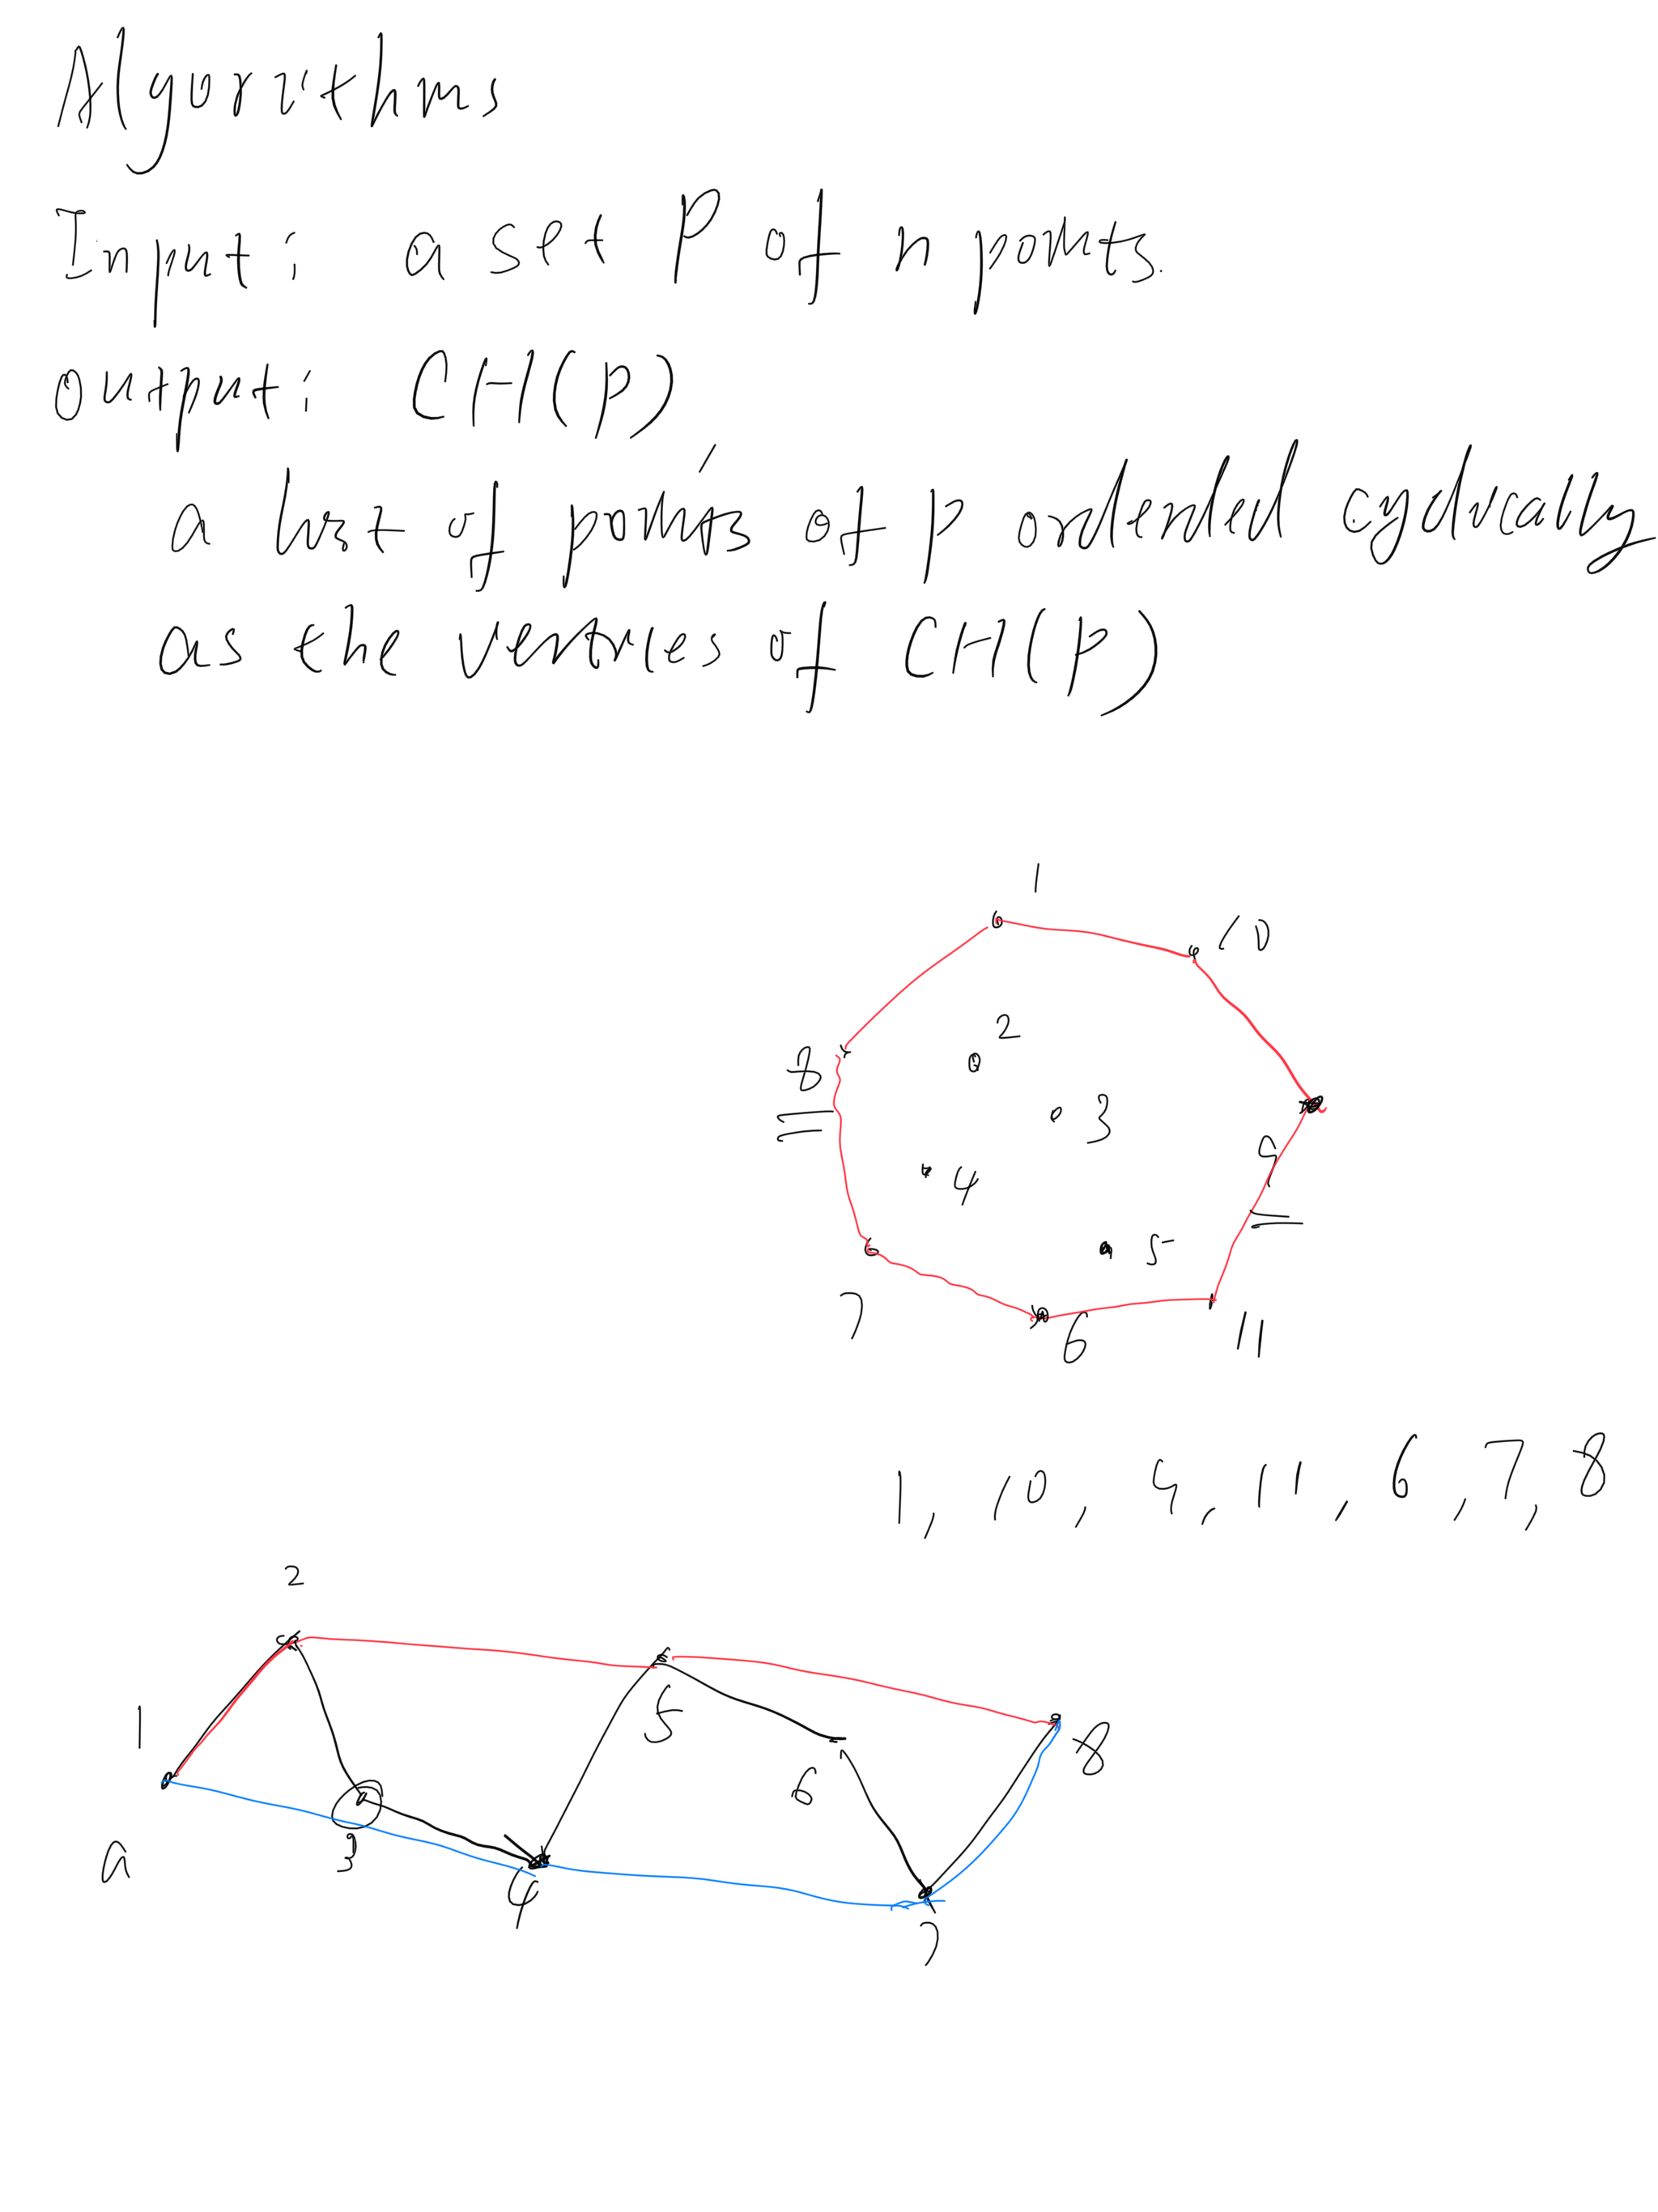 Algorithms
Input: a set P of n points.
output: CH(P)
a list of points of P ordered cyclically
as the vertices of CH(P)
1
10
2
8
3
9
4
5
7
6
11
1, 10, 9, 11, 6, 7, 8
2
1
5
8
6
a
3
4
7